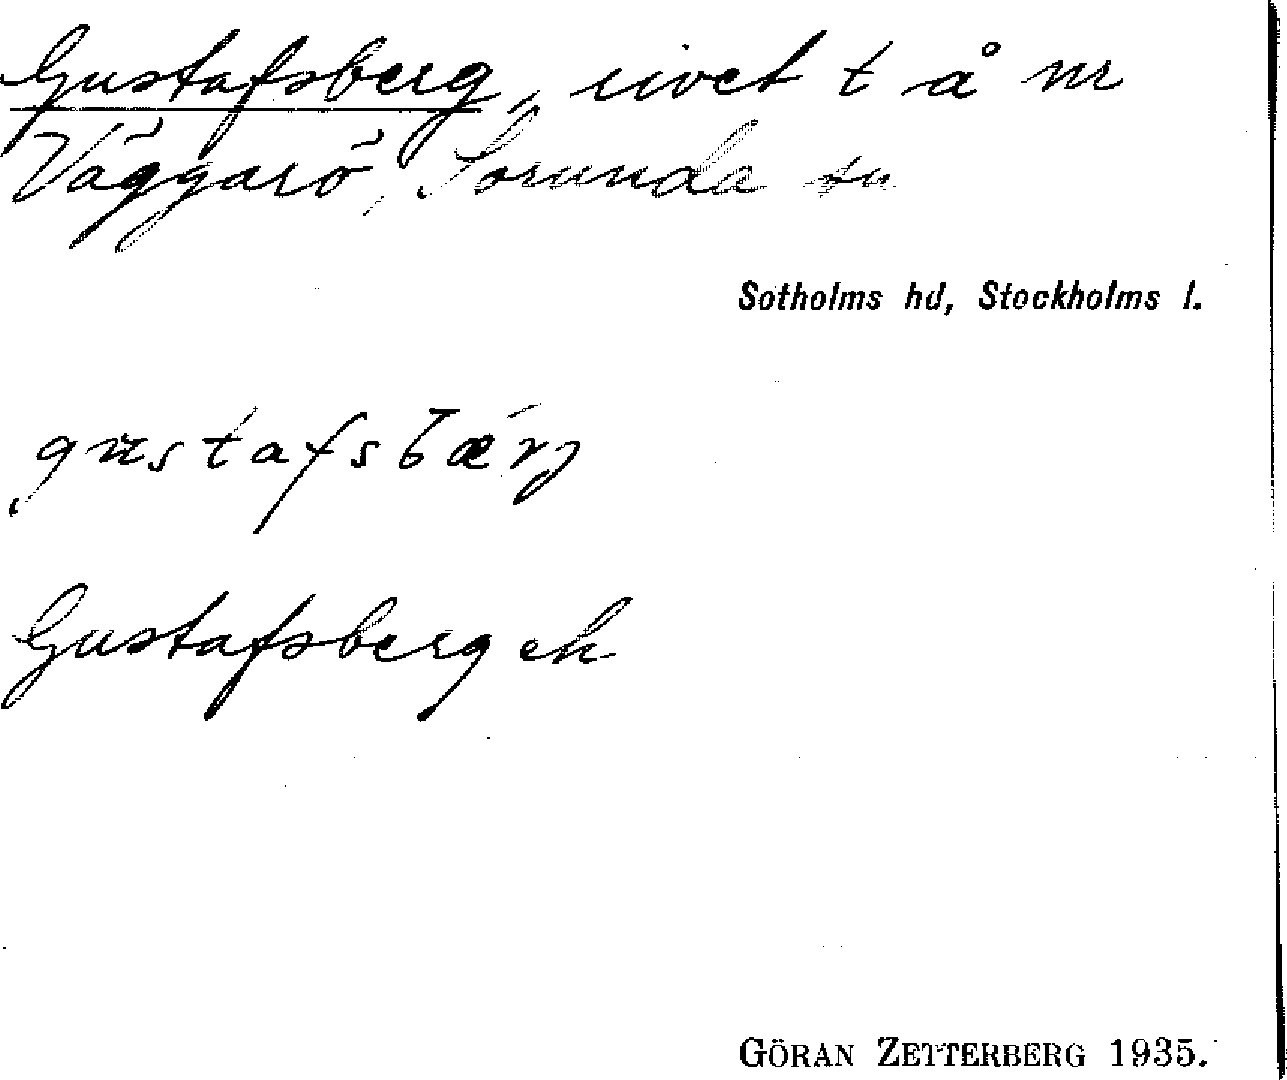 Gustafsberg, t å nr
Väggarö, Sorunda sn
Sotholms hd, Stockholms l.
gustafsbærj
Gustafsberg ek
GÖRAN ZETTERBERG 1935.